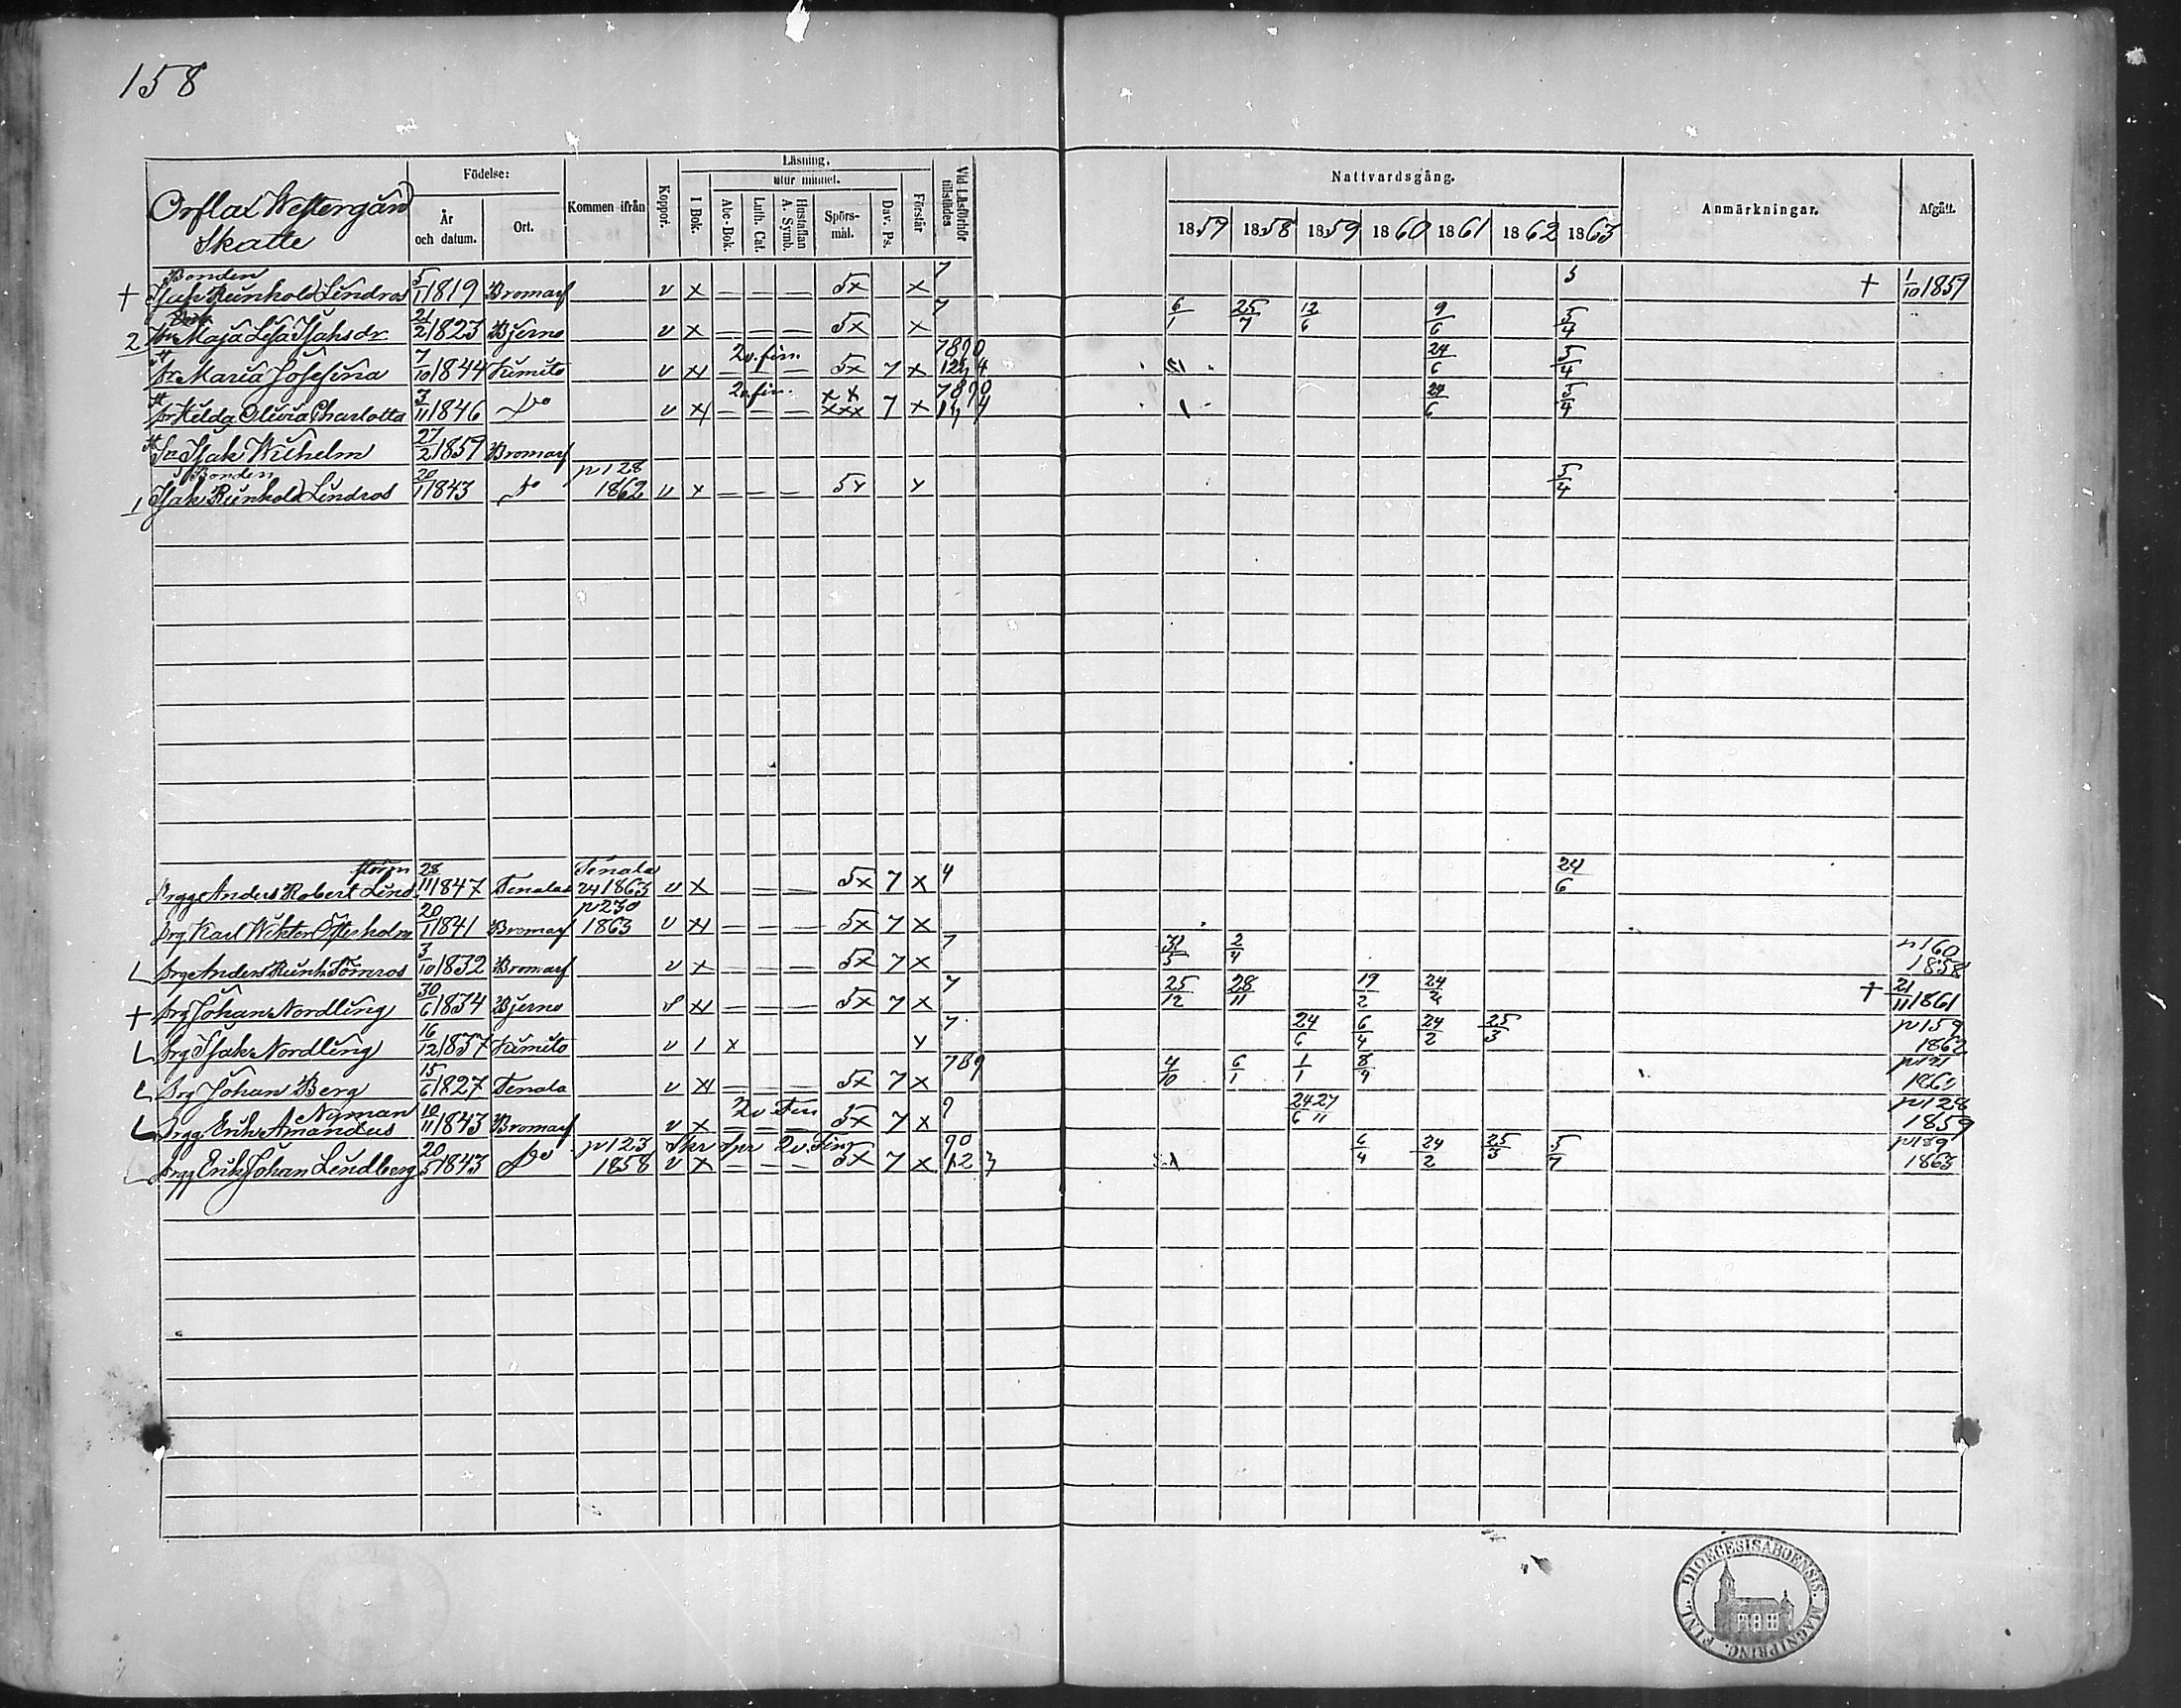 158
Orflax Westergård
Skatte
Födelse:
År och datum.
Ort.
Kommen ifrån
Koppor.
Läsning.
I Bok.
utur minnet.
Abc-Bok.
Luth. Cat.
Hustaflan A. Symb.
Spörsmål.
Dav. Ps.
Förstår
Vid Läsförhör tillstädes
Nattvardsgång.
1857 1858 1859 1860 1861 1862 1863
Anmärkningar.
Afgått.
Bonden
+ Isak Reinhold Lindros 5/1 1819 Bromarf v x — — — 5x x 7 + 1/10 1857
2 Maja Lisa Isaksdr 21/2 1823 Bjerno v x — — — 5x x 7 6/1 25/7 12/6 9/6 5/4
Maria Josefina 7/10 1844 Kimito v x 2v. fin. — — — 5x 7 x 24/6 5/4
Hilda Olivia Charlotta 3/11 1846 Do v x 2v. fin. — — — xxxxx 7 x 24/6 5/4
Sn Isak Wilhelm 27/2 1857 Bromarf
Bonden
1 Isak Reinhold Lindros 20/1 1843 Do p 128 1862 v x — — — 5x x 5/4
Drgg Anders Robert Lindström 28/11 1847 Tenala Tenala 1863 v x — — — 5x 7 x 4 24/6
Drg Karl Wiktor Österholm 20/1 1841 Bromarf p 230 1863 v x — — — 5x 7 x
Drg Anders Reinh Törnros 3/10 1832 Bromarf v x — — — 5x 7 x 7 31/5 2/4 p 160 1858
+ Drg Johan Nordling 30/6 1834 Bjerno x — — — 5x 7 x 7 25/12 28/11 19/2 24/2 + 21/11 1861
Drg Isak Nordling 16/12 1837 Kimito v 1 x x 7 24/6 6/4 24/2 25/3 p 159 1862
Drg Johan Berg 15/6 1827 Tenala v x — — — 5x 7 x 789 4/10 6/1 1/1 8/9 p 121
Drgg Erik Amandus Nyman 10/11 1843 Bromarf v x 2v Fin — — — 5x 7 x 9 24/6 27/11 p 128 1859
Drgg Erik Johan Lindberg 20/5 1843 Do p 123 1858 v x 2v. Fin — — — 5x 7 x 6/4 24/2 25/3 5/7 1863
DIOECESIS ABOENSIS. MAGNI PRINC. FINL.